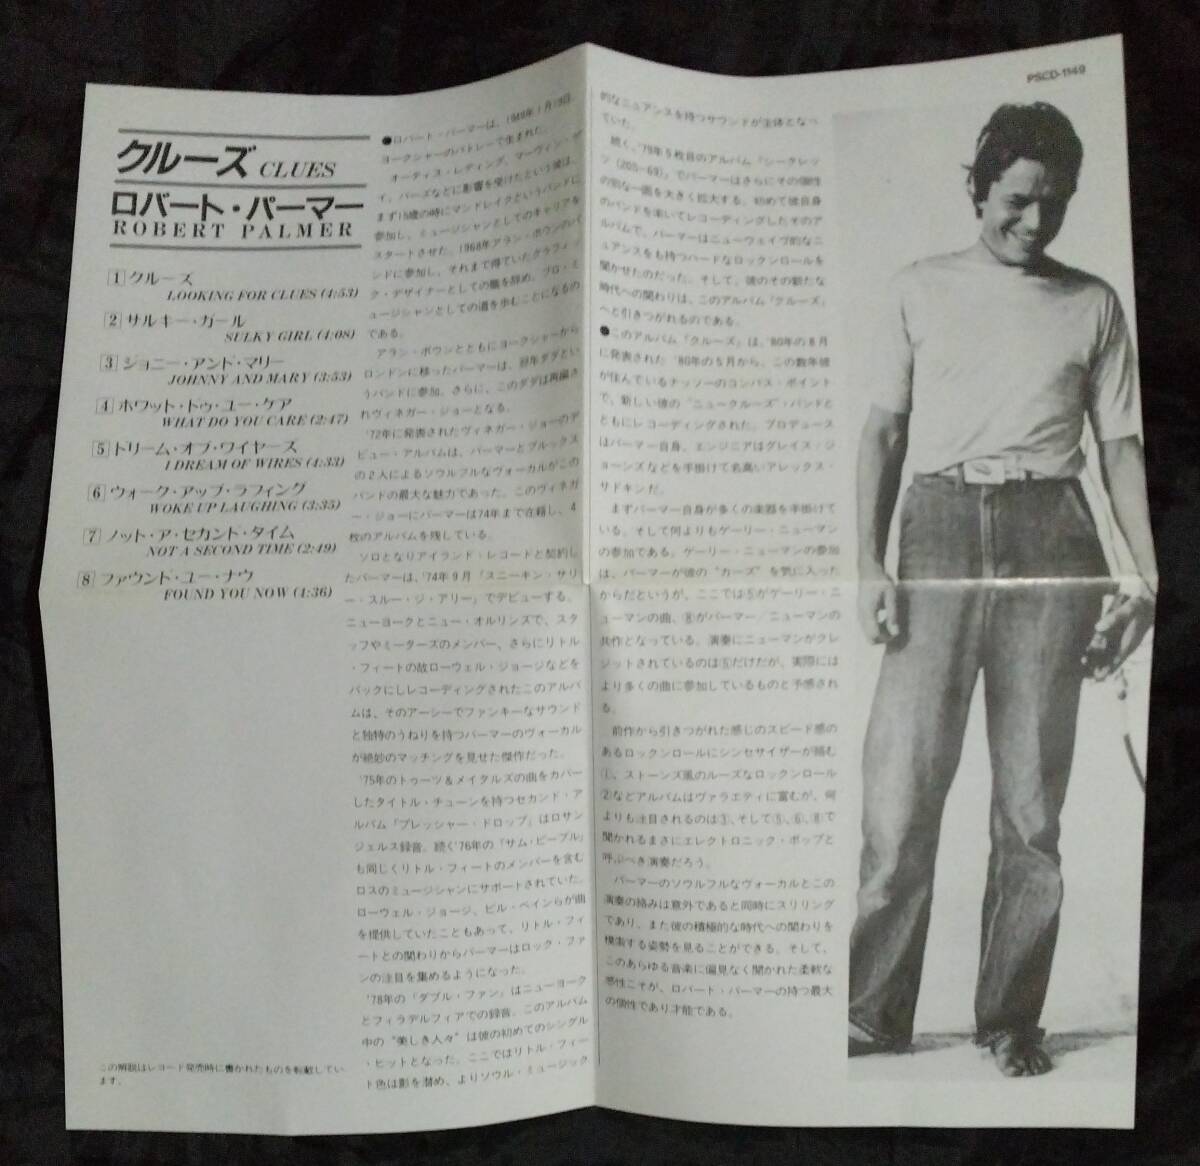 PSCD-1149
クルーズ CLUES
ロバート・パーマー
ROBERT PALMER
1 クルーズ
LOOKING FOR CLUES (4:53)
2 サルキー・ガール
SULKY GIRL (4:08)
3 ジョニー・アンド・マリー
JOHNNY AND MARY (3:53)
4 ホワット・ドゥ・ユー・ケア
WHAT DO YOU CARE (2:47)
5 ドリーム・オブ・ワイヤーズ
I DREAM OF WIRES (4:33)
6 ウォーク・アップ・ラフィング
WOKE UP LAUGHING (3:35)
7 ノット・ア・セカンド・タイム
NOT A SECOND TIME (2:49)
8 ファウンド・ユー・ナウ
FOUND YOU NOW (4:36)
この解説はレコード発売時に書かれたものを転載してい
ます。
●ロバート・パーマーは、1949年1月19日、
ヨークシャーのバトレーで生まれた。
オーティス・レディング、マーヴィン・ゲ
イ、バーズなどに影響を受けたという彼は、
まず15歳の時にマンドレイクというバンドに
参加し、ミュージシャンとしてのキャリアを
スタートさせた。1968年アラン・ボウンのバ
ンドに参加し、それまで得ていたグラフィッ
ク・デザイナーとしての職を辞め、プロ・ミ
ュージシャンとしての道を歩むことになるの
である。
アラン・ボウンとともにヨークシャーから
ロンドンに移ったパーマーは、翌年ダダとい
うバンドに参加。さらに、このダダは再編さ
れヴィネガー・ジョーとなる。
'72年に発表されたヴィネガー・ジョーのデ
ビュー・アルバムは、パーマーとブルックス
の2人によるソウルフルなヴォーカルがこの
バンドの最大な魅力であった。このヴィネガ
ー・ジョーにパーマーは74年まで在籍し、4
枚のアルバムを残している。
ソロとなりアイランド・レコードと契約し
たパーマーは、'74年9月「スニーキン・サリ
ー・スルー・ジ・アリー」でデビューする。
ニューヨークとニュー・オルリンズで、スタ
ッフやミーターズのメンバー、さらにリトル
・フィートの故ローウェル・ジョージなどを
バックにしレコーディングされたこのアルバ
ムは、そのアーシーでファンキーなサウンド
と独特のうねりを持つパーマーのヴォーカル
が絶妙のマッチングを見せた傑作だった。
'75年のトゥーツ&メイタルズの曲をカバー
したタイトル・チューンを持つセカンド・ア
ルバム「プレッシャー・ドロップ」はロサン
ジェルス録音。続く'76年の「サム・ピープル」
も同じくリトル・フィートのメンバーを含む
ロスのミュージシャンにサポートされていた。
ローウェル・ジョージ、ビル・ペインらが曲
を提供していたこともあって、リトル・フィ
ートとの関わりからパーマーはロック・ファ
ンの注目を集めるようになった。
'78年の「ダブル・ファン」はニューヨーク
とフィラデルフィアでの録音。このアルバム
中の“美しき人々”は彼の初めてのシングル
・ヒットとなった。ここではリトル・フィー
ト色は影を潜め、よりソウル・ミュージック
的なニュアンスを持つサウンドが主体となっ
ていた。
続く、'79年5枚目のアルバム「シークレッ
ツ (20S-69)」でパーマーはさらにその個性
の別な一面を大きく拡大する。初めて彼自身
のバンドを率いてレコーディングしたそのア
ルバムで、パーマーはニューウェイヴ的なニ
ュアンスをも持つハードなロックンロールを
聞かせたのだった。そして、彼のその新たな
時代への関わりは、このアルバム「クルーズ」
へと引きつがれるのである。
●このアルバム「クルーズ」は、'80年の8月
に発表された。'80年の5月から、この数年彼
が住んでいるナッソーのコンパス・ポイント
で、新しい彼の“ニュークルーズ”・バンドと
ともにレコーディングされた。プロデュース
はパーマー自身、エンジニアはグレイス・ジ
ョーンズなどを手掛けて名高いアレックス・
サドキンだ。
まずパーマー自身が多くの楽器を手掛けて
いる。そして何よりもゲーリー・ニューマン
の参加である。ゲーリー・ニューマンの参加
は、パーマーが彼の“カーズ”を気に入った
からだというが、ここでは⑤がゲーリー・ニ
ューマンの曲、⑧がパーマー/ニューマンの
共作となっている。演奏にニューマンがクレ
ジットされているのは⑤だけだが、実際には
より多くの曲に参加しているものと予感され
る。
前作から引きつがれた感じのスピード感の
あるロックンロールにシンセサイザーが絡む
①、ストーンズ風のルーズなロックンロール
②などアルバムはヴァラエティに富むが、何
よりも注目されるのは③、そして⑤、⑥、⑧で
聞かれるまさにエレクトロニック・ポップと
呼ぶべき演奏だろう。
パーマーのソウルフルなヴォーカルとこの
演奏の絡みは意外であると同時にスリリング
であり、また彼の積極的な時代への関わりを
模索する姿勢を見ることができる。そして、
このあらゆる音楽に偏見なく開かれた柔軟な
感性こそが、ロバート・パーマーの持つ最大
の個性であり才能である。